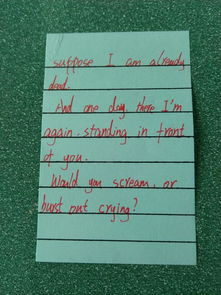 suppose I am already
dead.
And one day there I'm
again. standing in front
of you.
Would you scream. or
burst out crying?